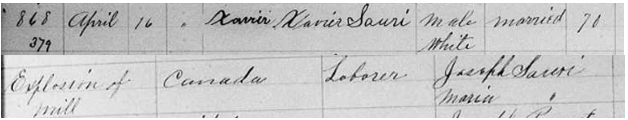 868 April 16 " Xavier Xavier Sauri Male married 70
379 White
Explosion of Canada Laborer Joseph Sauri
Mill Maria "